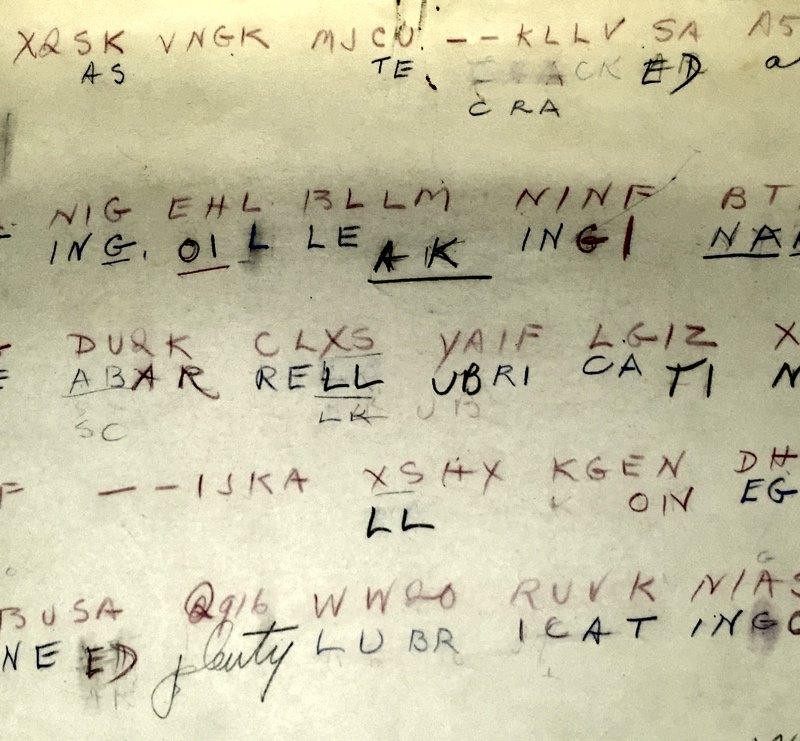 XQSK VNGK MJCU -- KLLV SA A5
AS TE CK ED a
CRA
NIG EHL BLLM NINF BT
ING. OIL LE AK INGI NA
DUQK CLXS YAIF LGIZ X
E ABAR RELL UBRI CATI N
SC LK UB
F --IJKA XSHX KGEN DH
LL OIN EG
BUSA Qq16 WWQO RUVK NIAS
NE ED plenty LUBR ICAT INGO